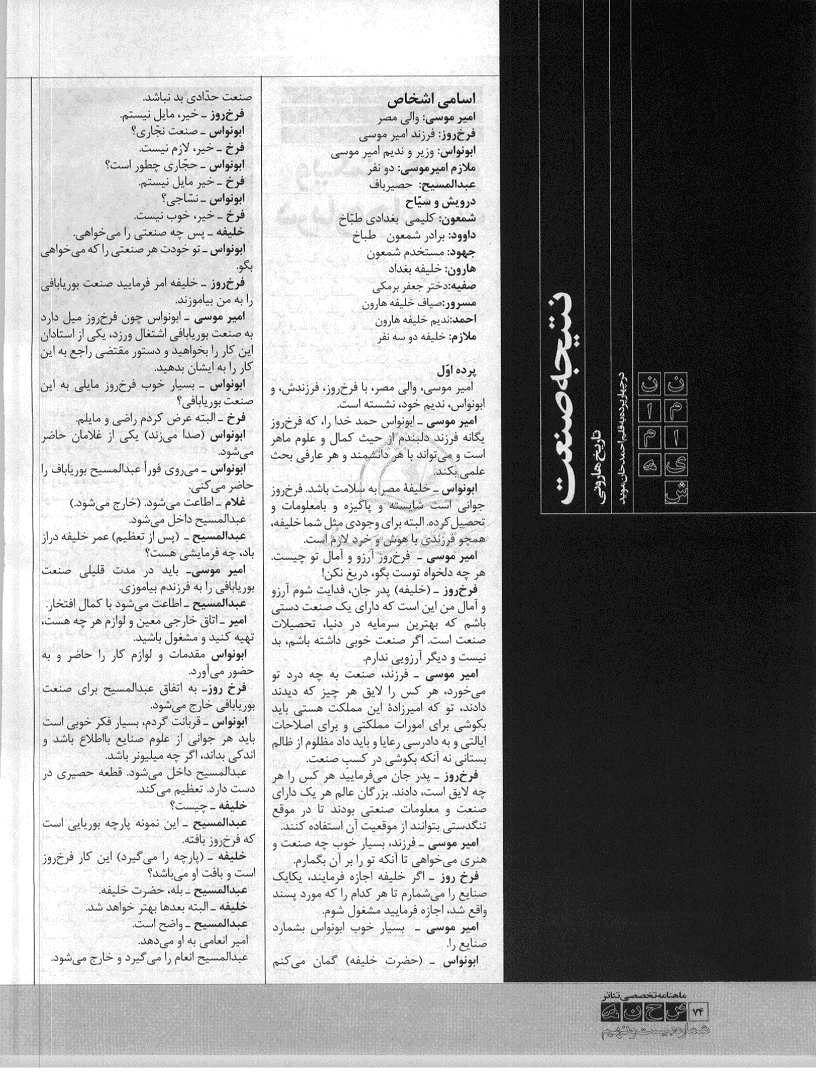 نتیجه صنعت
تاریخ هارونی
در چهار پرده به قلم احمدخان موید
نمایش
نامه
اسامی اشخاص
امیر موسی: والی مصر
فرخ‌روز: فرزند امیر موسی
ابونواس: وزیر و ندیم امیر موسی
ملازم امیرموسی: دو نفر
عبدالمسیح: حصیرباف
درویش و سیّاح
شمعون: کلیمی بغدادی طبّاخ
داوود: برادر شمعون طباخ
جهود: مستخدم شمعون
هارون: خلیفه بغداد
صفیه:دختر جعفر برمکی
مسرور:صیاف خلیفه هارون
احمد:ندیم خلیفه هارون
ملازم: خلیفه دو سه نفر
پرده اوّل
امیر موسی، والی مصر، با فرخ‌روز، فرزندش، و
ابونواس، ندیم خود، نشسته است.
امیر موسی ـ ابونواس حمد خدا را، که فرخ‌روز
یگانه فرزند دلبندم از حیث کمال و علوم ماهر
است و می‌تواند با هر دانشمند و هر عارفی بحث
علمی بکند.
ابونواس ـ خلیفهٔ مصر به سلامت باشد. فرخ‌روز
جوانی است شایسته و پاکیزه و بامعلومات و
تحصیل‌کرده. البته برای وجودی مثل شما خلیفه،
همچو فرزندی با هوش و خرد لازم است.
امیر موسی ـ فرخ‌روز آرزو و آمال تو چیست.
هر چه دلخواه توست بگو، دریغ نکن!
فرخ‌روز ـ (خلیفه) پدر جان، فدایت شوم آرزو
و آمال من این است که دارای یک صنعت دستی
باشم که بهترین سرمایه در دنیا، تحصیلات
صنعت است. اگر صنعت خوبی داشته باشم، بد
نیست و دیگر آرزویی ندارم.
امیر موسی ـ فرزند، صنعت به چه درد تو
می‌خورد، هر کس را لایق هر چیز که دیدند
دادند، تو که امیرزادهٔ این مملکت هستی باید
بکوشی برای امورات مملکتی و برای اصلاحات
ایالتی و به دادرسی رعایا و باید داد مظلوم از ظالم
بستانی نه آنکه بکوشی در کسبِ صنعت.
فرخ‌روز ـ پدر جان می‌فرمایید هر کس را هر
چه لایق است، دادند. بزرگان عالم هر یک دارای
صنعت و معلومات صنعتی بودند تا در موقع
تنگدستی بتوانند از موقعیت آن استفاده کنند.
امیر موسی ـ فرزند، بسیار خوب چه صنعت و
هنری می‌خواهی تا آنکه تو را بر آن بگمارم.
فرخ روز ـ اگر خلیفه اجازه فرمایند، یکایک
صنایع را می‌شمارم تا هر کدام را که مورد پسند
واقع شد، اجازه فرمایید مشغول شوم.
امیر موسی ـ بسیار خوب ابونواس بشمارد
صنایع را.
ابونواس ـ (حضرت خلیفه) گمان می‌کنم
صنعت حدّادی بد نباشد.
فرخ‌روز ـ خیر، مایل نیستم.
ابونواس ـ صنعت نجّاری؟
فرخ ـ خیر، لازم نیست.
ابونواس ـ حجّاری چطور است؟
فرخ ـ خیر مایل نیستم.
ابونواس ـ نسّاجی؟
فرخ ـ خیر، خوب نیست.
خلیفه ـ پس چه صنعتی را می‌خواهی.
ابونواس ـ تو خودت هر صنعتی را که می‌خواهی
بگو.
فرخ‌روز ـ خلیفه امر فرمایید صنعت بوریابافی
را به من بیاموزند.
امیر موسی ـ ابونواس چون فرخ‌روز میل دارد
به صنعت بوریابافی اشتغال ورزد، یکی از استادان
این کار را بخواهید و دستور مقتضی راجع به این
کار را به ایشان بدهید.
ابونواس ـ بسیار خوب فرخ‌روز مایلی به این
صنعت بوریابافی؟
فرخ ـ البته عرض کردم راضی و مایلم.
ابونواس (صدا می‌زند) یکی از غلامان حاضر
می‌شود.
ابونواس ـ می‌روی فوراً عبدالمسیح بوریاباف را
حاضر می‌کنی.
غلام ـ اطاعت می‌شود. (خارج می‌شود.)
عبدالمسیح داخل می‌شود.
عبدالمسیح ـ (پس از تعظیم) عمر خلیفه دراز
باد، چه فرمایشی هست؟
امیر موسی ـ باید در مدت قلیلی صنعت
بوریابافی را به فرزندم بیاموزی.
عبدالمسیح ـ اطاعت می‌شود با کمال افتخار.
امیر ـ اتاق خارجی معین و لوازم هر چه هست،
تهیه کنید و مشغول باشید.
ابونواس مقدمات و لوازم کار را حاضر و به
حضور می‌آورد.
فرخ روز ـ به اتفاق عبدالمسیح برای صنعت
بوریابافی خارج می‌شود.
ابونواس ـ قربانت گردم، بسیار فکر خوبی است
باید هر جوانی از علوم صنایع بااطلاع باشد و
اندکی بداند، اگر چه میلیونر باشد.
عبدالمسیح داخل می‌شود. قطعه حصیری در
دست دارد. تعظیم می‌کند.
خلیفه ـ چیست؟
عبدالمسیح ـ این نمونه پارچه بوریایی است
که فرخ‌روز بافته.
خلیفه ـ (پارچه را می‌گیرد) این کار فرخ‌روز
است و بافت او می‌باشد؟
عبدالمسیح ـ بله، حضرت خلیفه.
خلیفه ـ البته بعدها بهتر خواهد شد.
عبدالمسیح ـ واضح است.
امیر انعامی به او می‌دهد.
عبدالمسیح انعام را می‌گیرد و خارج می‌شود.
ماهنامه تخصصی تئاتر
۷۴ صحنه
شماره بیست و نهم